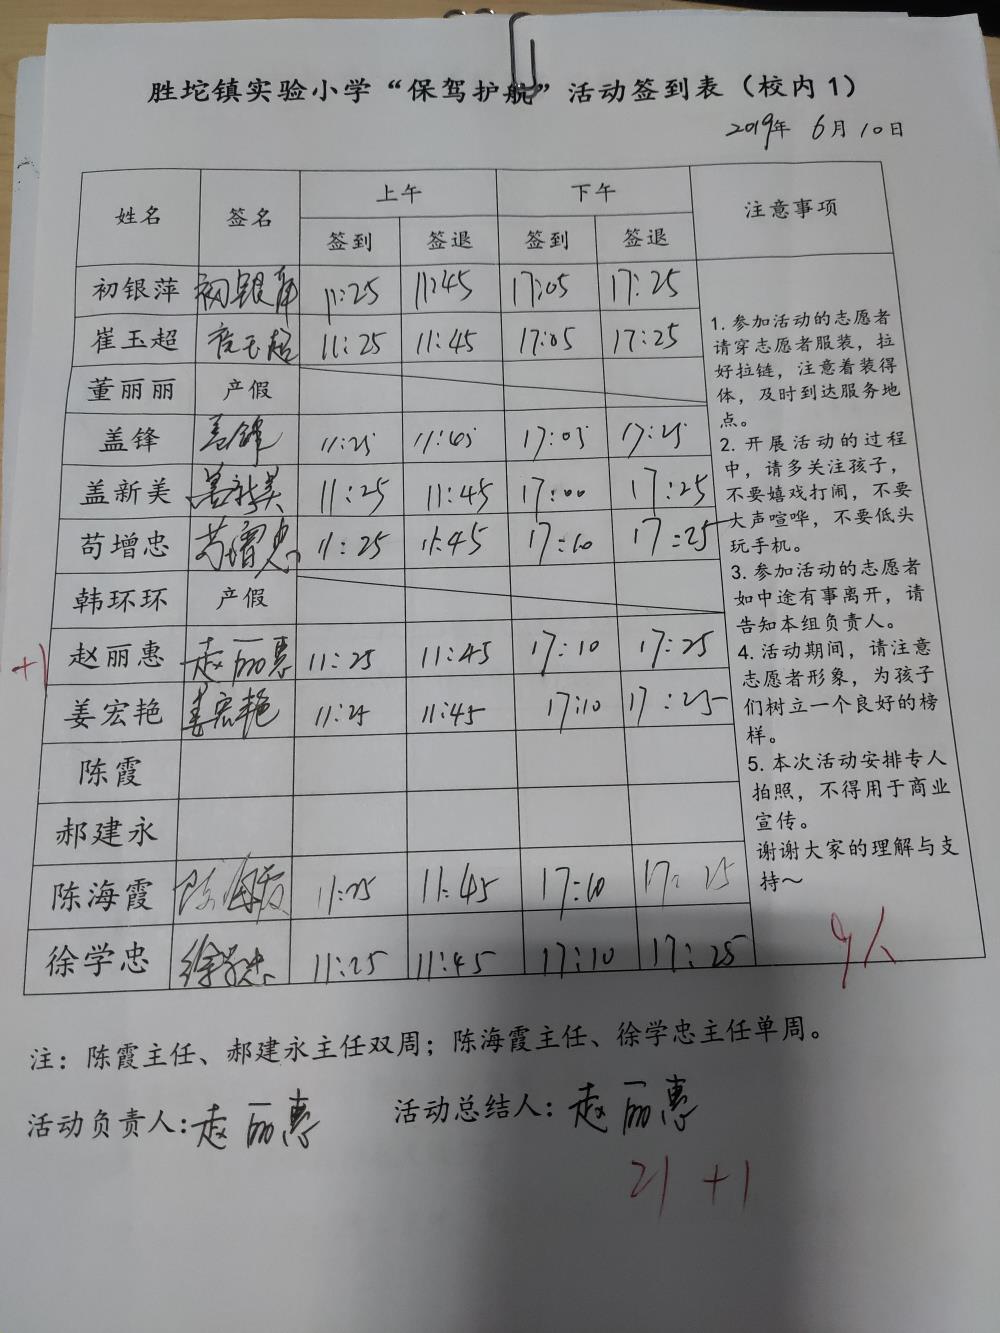 胜坨镇实验小学“保驾护航”活动签到表（校内1）
2019年 6月10日
姓名 签名 上午 下午 注意事项
签到 签退 签到 签退
初银萍 初银萍 11:25 11:45 17:05 17:25
崔玉超 崔玉超 11:25 11:45 17:05 17:25
董丽丽 产假
盖锋 盖锋 11:25 11:45 17:05 17:25
盖新美 盖新美 11:25 11:45 17:00 17:25
苟增忠 苟增忠 11:25 11:45 17:10 17:25
韩环环 产假
+1 赵丽惠 赵丽惠 11:25 11:45 17:10 17:25
姜宏艳 姜宏艳 11:25 11:45 17:10 17:25
陈霞
郝建永
陈海霞 陈海霞 11:25 11:45 17:10 17:25
徐学忠 徐学忠 11:25 11:45 17:10 17:25
1. 参加活动的志愿者
请穿志愿者服装，拉
好拉链，注意着装得
体，及时到达服务地
点。
2. 开展活动的过程
中，请多关注孩子，
不要嬉戏打闹，不要
大声喧哗，不要低头
玩手机。
3. 参加活动的志愿者
如中途有事离开，请
告知本组负责人。
4. 活动期间，请注意
志愿者形象，为孩子
们树立一个良好的榜
样。
5. 本次活动安排专人
拍照，不得用于商业
宣传。
谢谢大家的理解与支
持～
9人
注：陈霞主任、郝建永主任双周；陈海霞主任、徐学忠主任单周。
活动负责人：赵丽惠 活动总结人：赵丽惠
21 +1